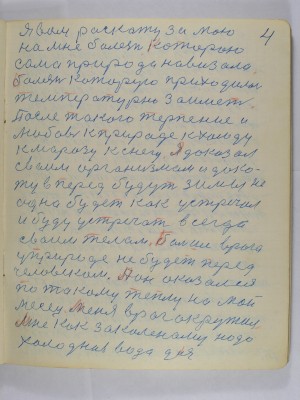 4
Я вам раскажу за мою
на мне болезн которою
сама природа навизала.
болезн которую приходилос
температурно заимет.
После такого терпение и
любов к природе к холоду
к марозу к снегу. Я доказал
своим организмом и дока-
жу в перед будут зимы не
одна будет как устречал
и буду устречат всегда
своим телом. Болше врага
у природе не будет перед
человеком. А он оказался
по такому теплу на мой
месец. Меня враг окружил
Мне как закаленому надо
холодная вода для